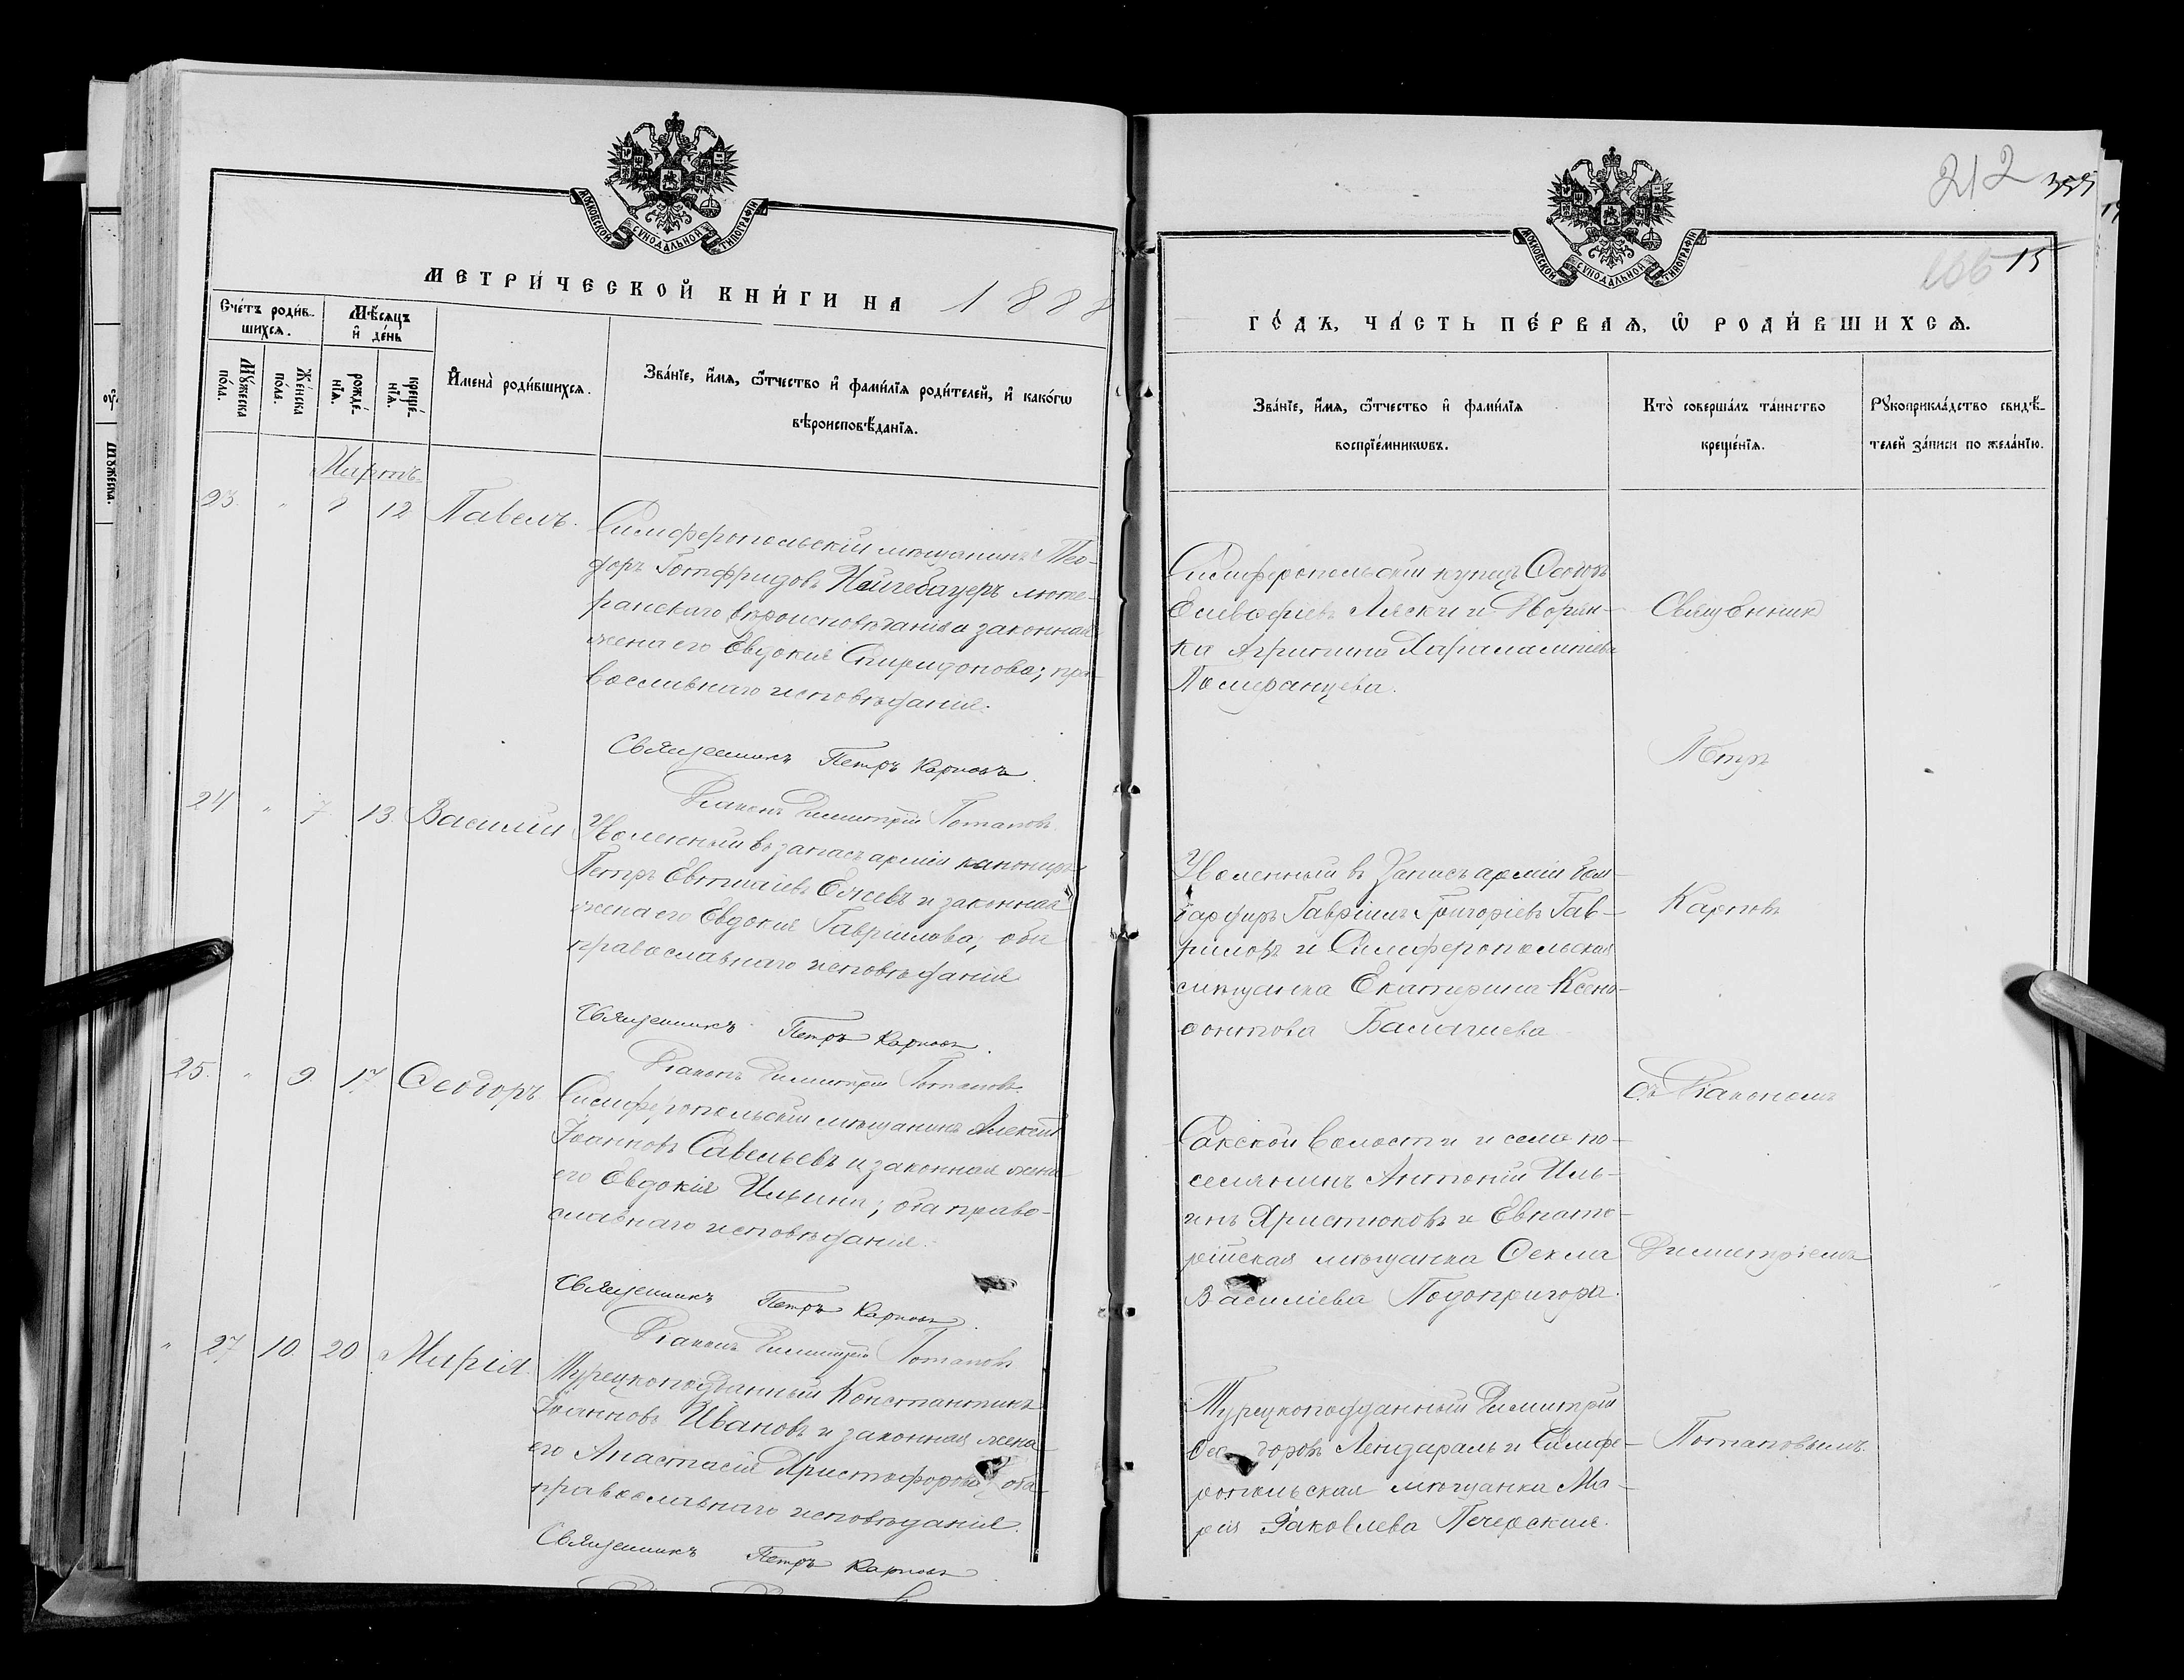 МОСКОВСКОЙ СУНОДАЛЬНОЙ ТИПОГРАФІИ
МЕТРИ́ЧЕСКОЙ КНИ́ГИ НА 1888
Сче́тъ роди́в-
шихся.
Мѣ́сяцъ
и҆ де́нь
Мꙋ́жеска
по́ла.
Же́нска
по́ла.
рожде́-
нїѧ.
креще́-
нїѧ.
И҆мена̀ роди́вшихсѧ.
Зва́нїе, и҆́мѧ, ѻ҆́тчество и҆ фамі́лїѧ роди́телей, и҆ како́гѡ
вѣроисповѣ́данїѧ.
Мартъ
23 " 8 12 Павелъ.
Симферопольскій мѣщанинъ Тео-
форъ Готфридовъ Нейгебауеръ люте-
ранскаго вѣроисповѣданія и законная
жена его Евдокія Спиридонова; пра-
вославнаго исповѣданія.
Священникъ Петръ Карповъ.
Діаконъ Димитрій Потаповъ.
24 " 7 13. Василій
Уволенный въ запасъ арміи канониръ
Петръ Евтихіевъ и законная
жена его Евдокія Гавриилова; оба
православнаго исповѣданія
Священникъ Петръ Карповъ.
Діаконъ Димитрій Потаповъ.
25. " 9. 17. Ѳеодоръ
Симферопольскій мѣщанинъ Алексѣй
Іоанновъ Савельевъ и законная жена
его Евдокія Ильина; оба право-
славнаго исповѣданія.
Священникъ Петръ Карповъ.
Діаконъ Димитрій Потаповъ
" 27 10. 20 Марія.
Турецкоподданный Константинъ
Іоанновъ Ивановъ и законная жена
его Анастасія Христофорова, оба
православнаго исповѣданія.
Священникъ Петръ Карповъ
212
15
МОСКОВСКОЙ СУНОДАЛЬНОЙ ТИПОГРАФІИ
ГО́ДЪ, ЧА́СТЬ ПЕ́РВАѦ, Ѡ҆ РОДИ́ВШИХСѦ.
Зва́нїе, и҆́мѧ, ѻ҆́тчество и҆ фамі́лїѧ
воспрїе́мникѡвъ.
Кто̀ соверша́лъ та́инство
креще́нїѧ.
Рꙋкоприкла́дство свидѣ́-
телей за́писи по жела́нїю.
Симферопольскій купецъ Ѳеодоръ
Елевферіевъ Ласки и Дворян-
ка Агрипина Харалампіева
Померанцева.
Священник
Петръ
Уволенный въ Запасъ арміи Бом-
бардиръ Гавріилъ Григоріевъ Гав-
риловъ и Симферопольская
мѣщанка Екатерина Ксено-
фонтова
Карповъ
съ Діакономъ
Сакской Волости и села по-
селянинъ Антоній Иль-
инъ Христюковъ и Евпато-
рійская мѣщанка Ѳекла
Василіева Подопригора.
Димитріемъ
Турецкоподданный Димитрій
Ѳеодоровъ и Симфе-
ропольская мѣщанка Ма-
рія Іаковлева Печерская.
Потаповымъ.